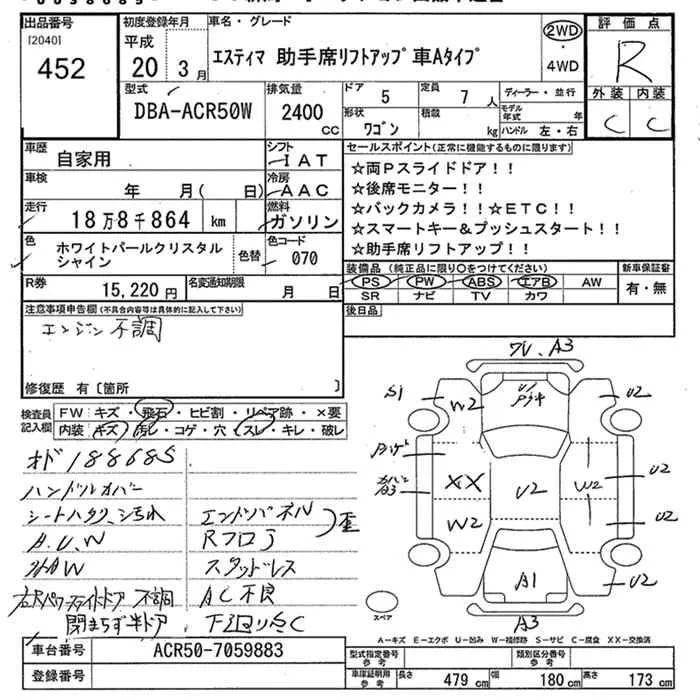 出品番号
[2040]
452
初度登録年月
平成
20 年 3 月
車名・グレード
エスティマ 助手席リフトアップ車Aタイプ
2WD
・
4WD
評価点
R
外装 内装
C C
型式
DBA-ACR50W
排気量
2400 CC
ドア 5
定員 7 人
形状 ワゴン
積載 kg
ディーラー・並行
モデル年式 年
ハンドル 左・右
車歴 自家用
シフト IAT
車検 年 月( 日)
冷房 AAC
走行 18万8千864 km
燃料 ガソリン
色 ホワイトパールクリスタル
シャイン
色替
色コード 070
R券 15,220 円
名変通知期限 月 日
セールスポイント(正常に機能するものに限ります)
☆両Pスライドドア!!
☆後席モニター!!
☆バックカメラ!!☆ETC!!
☆スマートキー&プッシュスタート!!
☆助手席リフトアップ!!
装備品 (純正品に限り○をつけてください)
PS PW ABS エアB AW
SR ナビ TV カワ
新車保証書
有・無
後日品
注意事項申告欄(不具合内容等は具体的に記入して下さい)
エンジン不調
修復歴 有〔箇所 〕
検査員
記入欄
FW キズ・飛石・ヒビ割・リペア跡・×要
内装 キズ・汚レ・コゲ・穴・スレ・キレ・破レ
オド188685
ハンドルカバー
A.U.W
閉まらず半ドア
エンドパネル
Rフロア
歪
スタッドレス
AC不良
下回りサC
A3
S1
W2
U2
U2
XX
U2
W2
U2
A3
W2
U2
A1
U2
A3
スペア
A-キズ E-エクボ U-凹み W-補修跡 S-サビ C-腐食 XX-交換済
車台番号 ACR50-7059883
登録番号
型式指定番号
参考
類別区分番号
参考
車庫証明用
参考
長さ 479 cm
幅 180 cm
高さ 173 cm